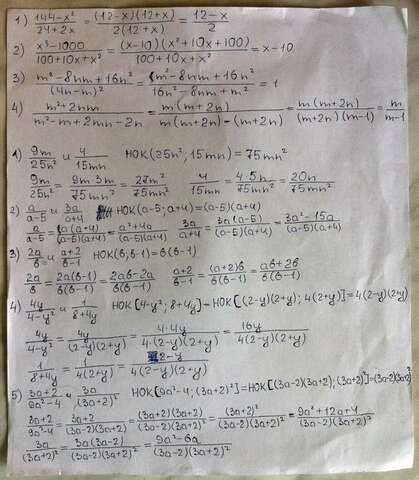 1) (144-x²)/(24+2x) = ((12-x)(12+x))/(2(12+x)) = (12-x)/2
2) (x³-1000)/(100+10x+x²) = ((x-10)(x²+10x+100))/(100+10x+x²) = x-10
3) (m²-8nm+16n²)/(4n-m)² = (m²-8nm+16n²)/(16n²-8nm+m²) = 1
4) (m²+2nm)/(m²-m+2mn-2n) = (m(m+2n))/(m(m+2n)-(m+2n)) = (m(m+2n))/((m+2n)(m-1)) = m/(m-1)
1) 9m/25n² и 4/15mn НОК(25n²; 15mn) = 75mn²
9m/25n² = (9m·3m)/75mn² = 27m²/75mn² 4/15mn = (4·5n)/75mn² = 20n/75mn²
2) a/(a-5) и 3a/(a+4) НОК(a-5; a+4) = (a-5)(a+4)
a/(a-5) = (a(a+4))/((a-5)(a+4)) = (a²+4a)/((a-5)(a+4)) 3a/(a+4) = (3a(a-5))/((a-5)(a+4)) = (3a²-15a)/((a-5)(a+4))
3) 2a/b и (a+2)/(b-1) НОК(b; b-1) = b(b-1)
2a/b = (2a(b-1))/(b(b-1)) = (2ab-2a)/(b(b-1)) (a+2)/(b-1) = ((a+2)b)/(b(b-1)) = (ab+2b)/(b(b-1))
4) 4y/(4-y²) и 1/(8+4y) НОК[4-y²; 8+4y] = НОК[(2-y)(2+y); 4(2+y)] = 4(2-y)(2+y)
4y/(4-y²) = 4y/((2-y)(2+y)) = (4·4y)/(4·(2-y)(2+y)) = 16y/(4(2-y)(2+y))
1/(8+4y) = 1/(4(2+y)) = (2-y)/(4(2-y)(2+y))
5) (3a+2)/(9a²-4) и 3a/(3a+2)² НОК[9a²-4; (3a+2)²] = НОК[(3a-2)(3a+2); (3a+2)²] = (3a-2)(3a+2)²
(3a+2)/(9a²-4) = (3a+2)/((3a-2)(3a+2)) = ((3a+2)(3a+2))/((3a-2)(3a+2)(3a+2)) = (3a+2)²/((3a-2)(3a+2)²) = (9a²+12a+4)/((3a-2)(3a+2)²)
3a/(3a+2)² = (3a(3a-2))/((3a-2)(3a+2)²) = (9a²-6a)/((3a-2)(3a+2)²)